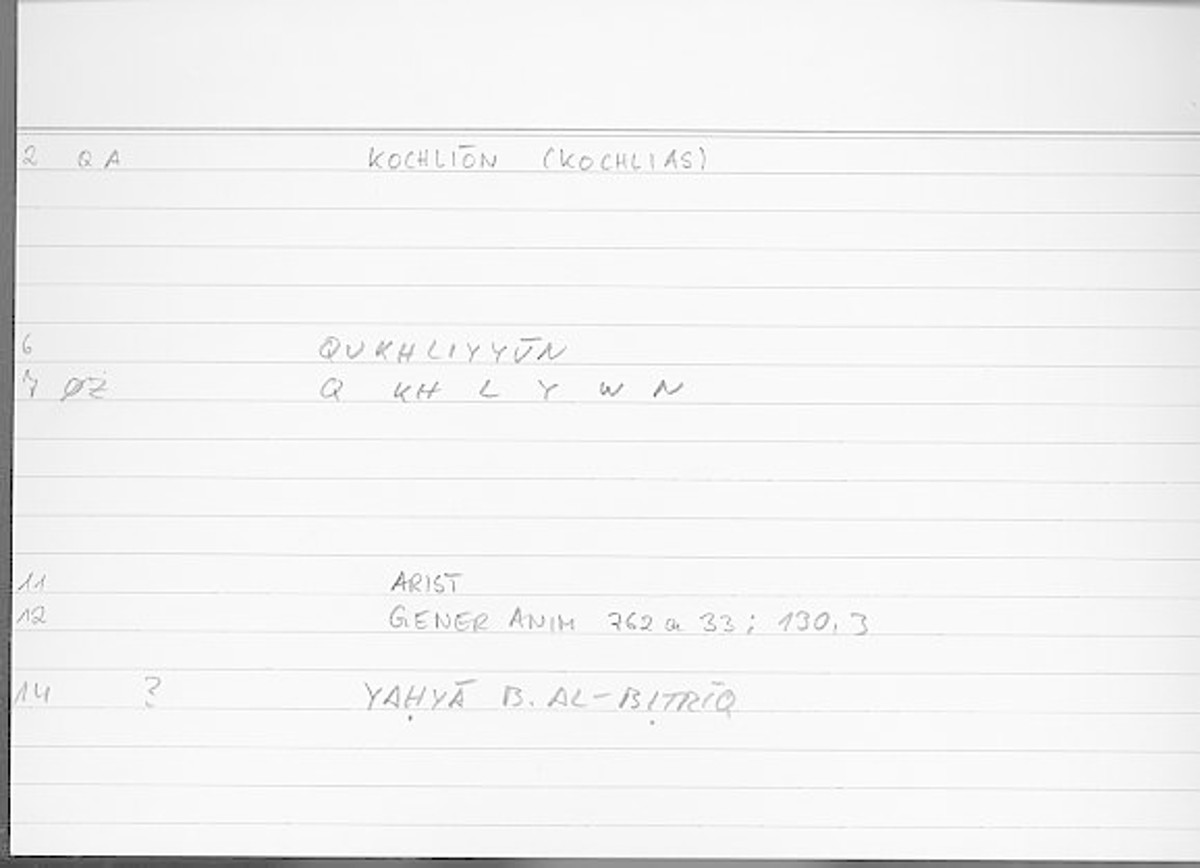 2 QA KOCHLIŌN (KOCHLIAS)
6 QUKHLIYYŪN
7 ØZ Q KH L Y W N
11 ARIST
12 GENER ANIM 762 a 33; 130,3
14 ? YAḤYĀ B. AL-BIṬRĪQ